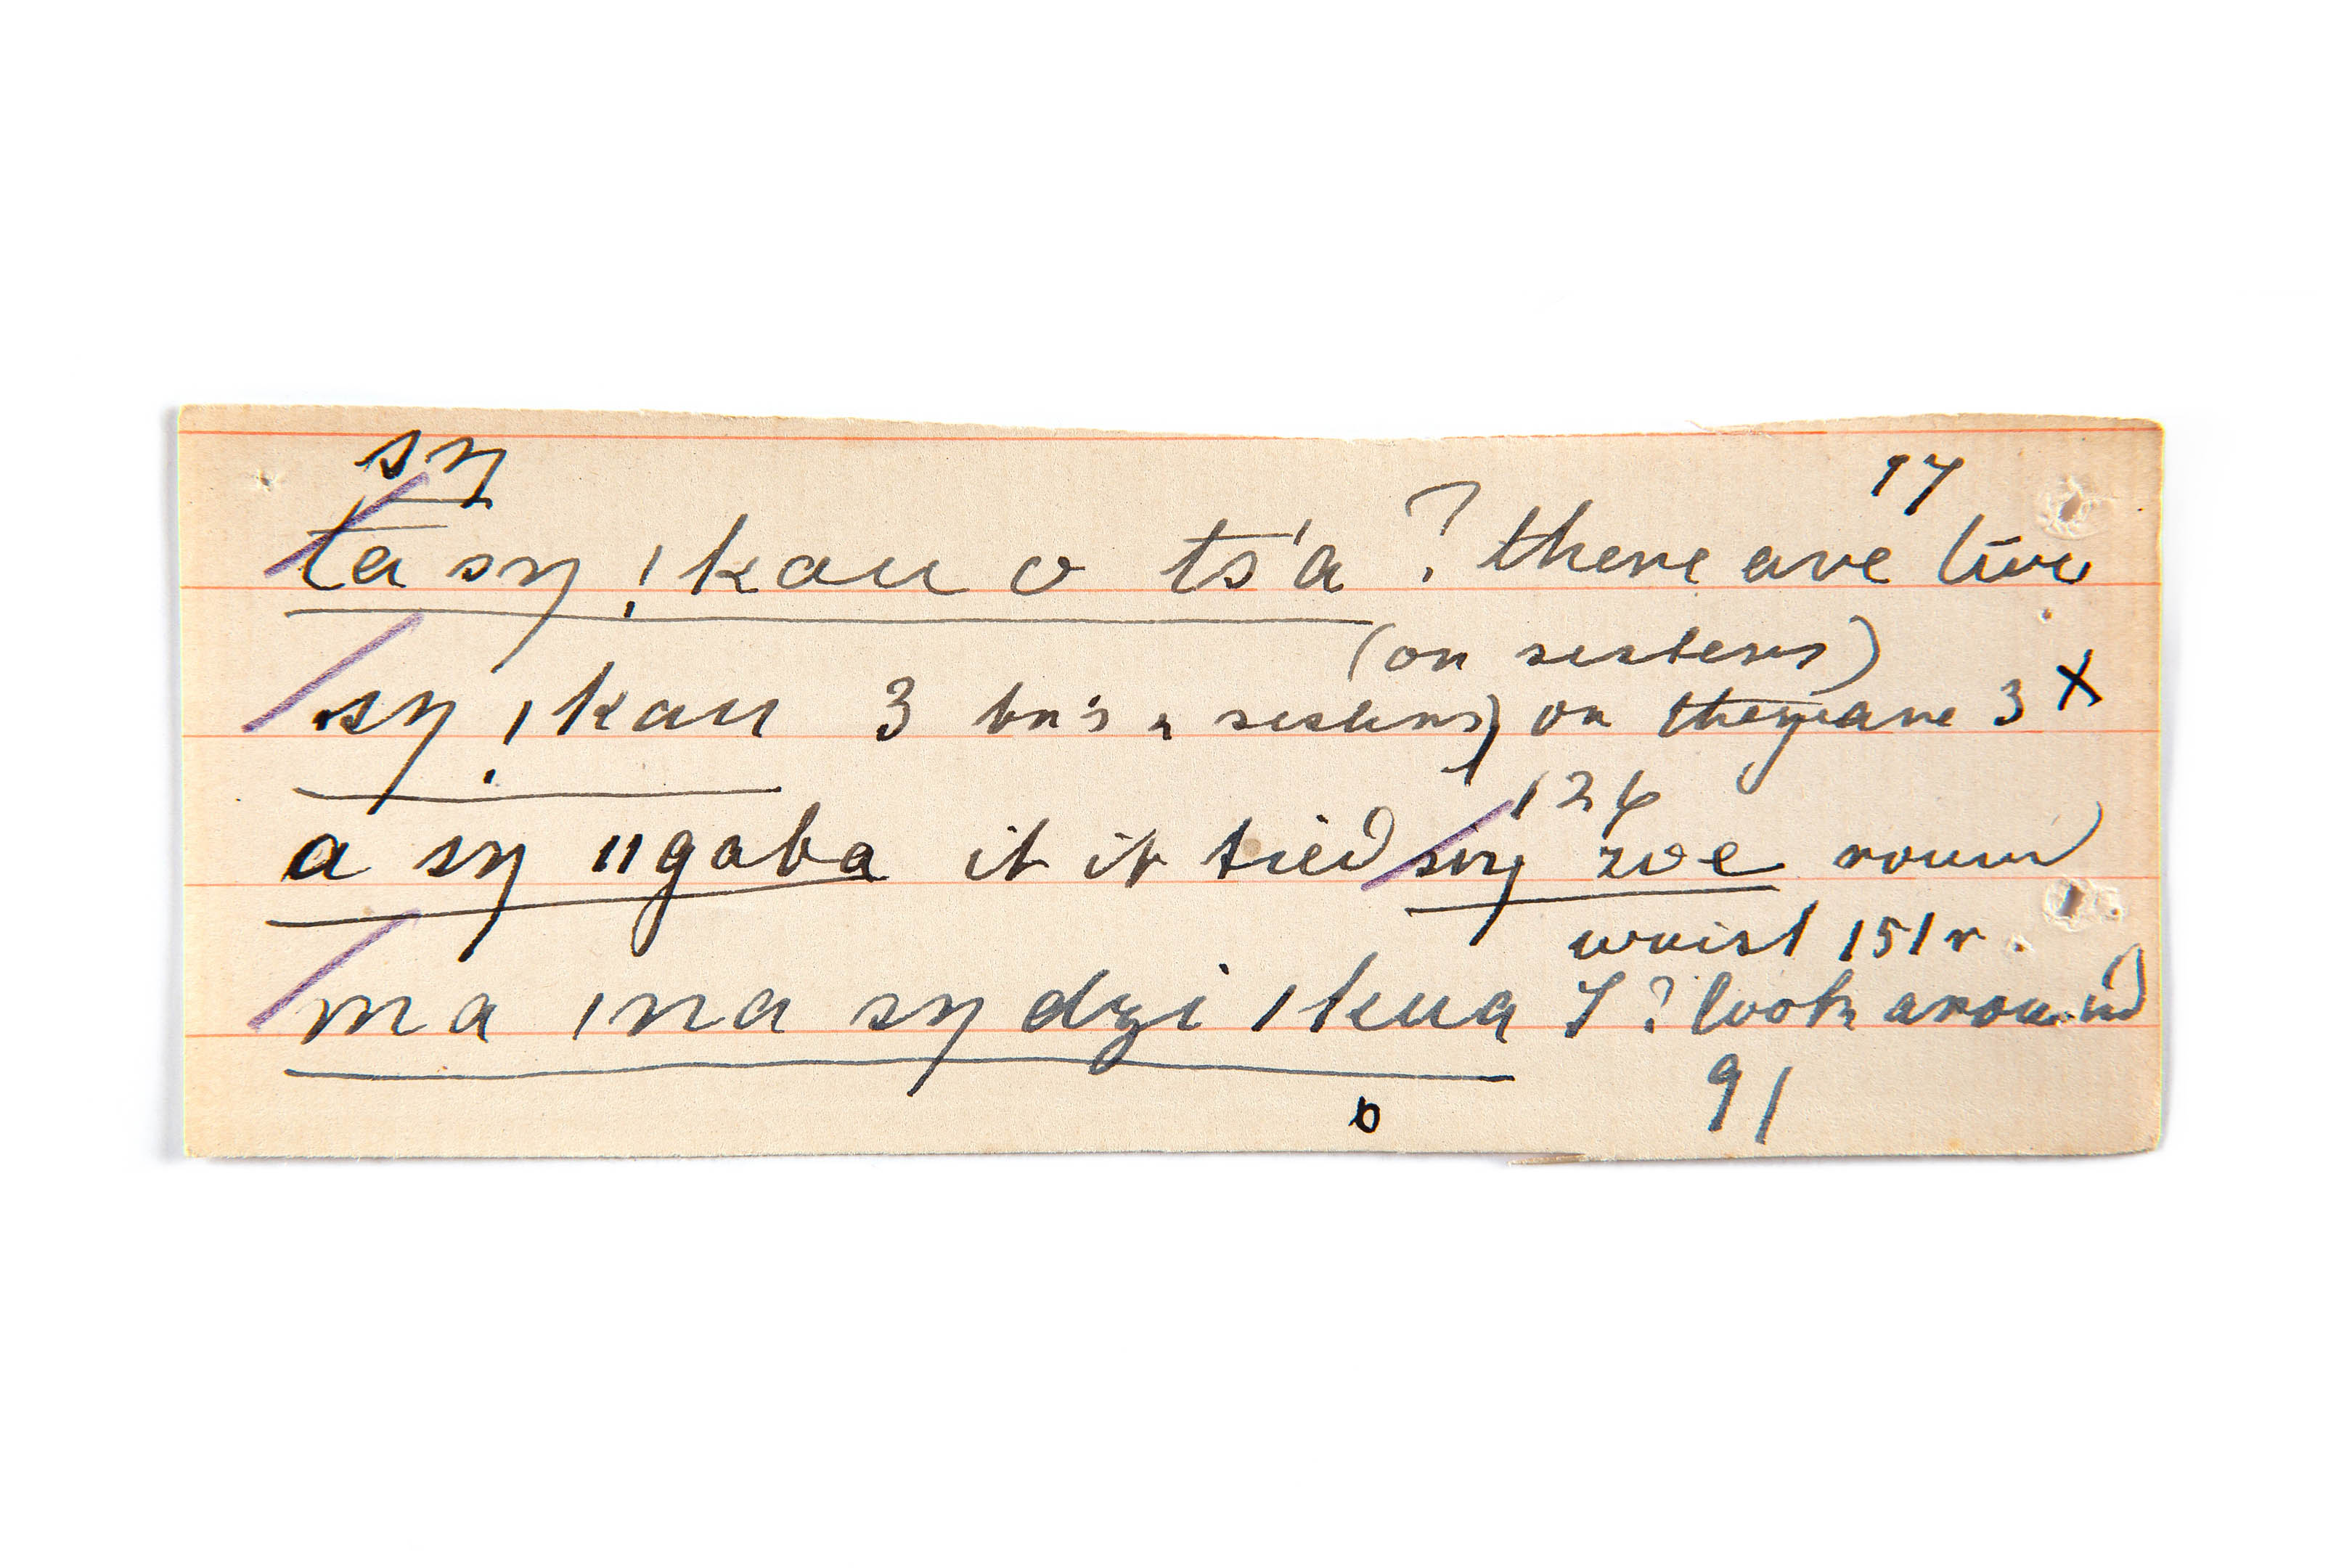 sŋ 17
ta sŋ !kau o ts'a ? there are two
(or sisters)
sŋ !kau 3 br's & sisters) or they are 3 X
126
a sŋ ǁgaba it is tied sŋ zoe round
waist 151 r.
ma ǀna sŋ dzi ǀkua ? look around
o 91